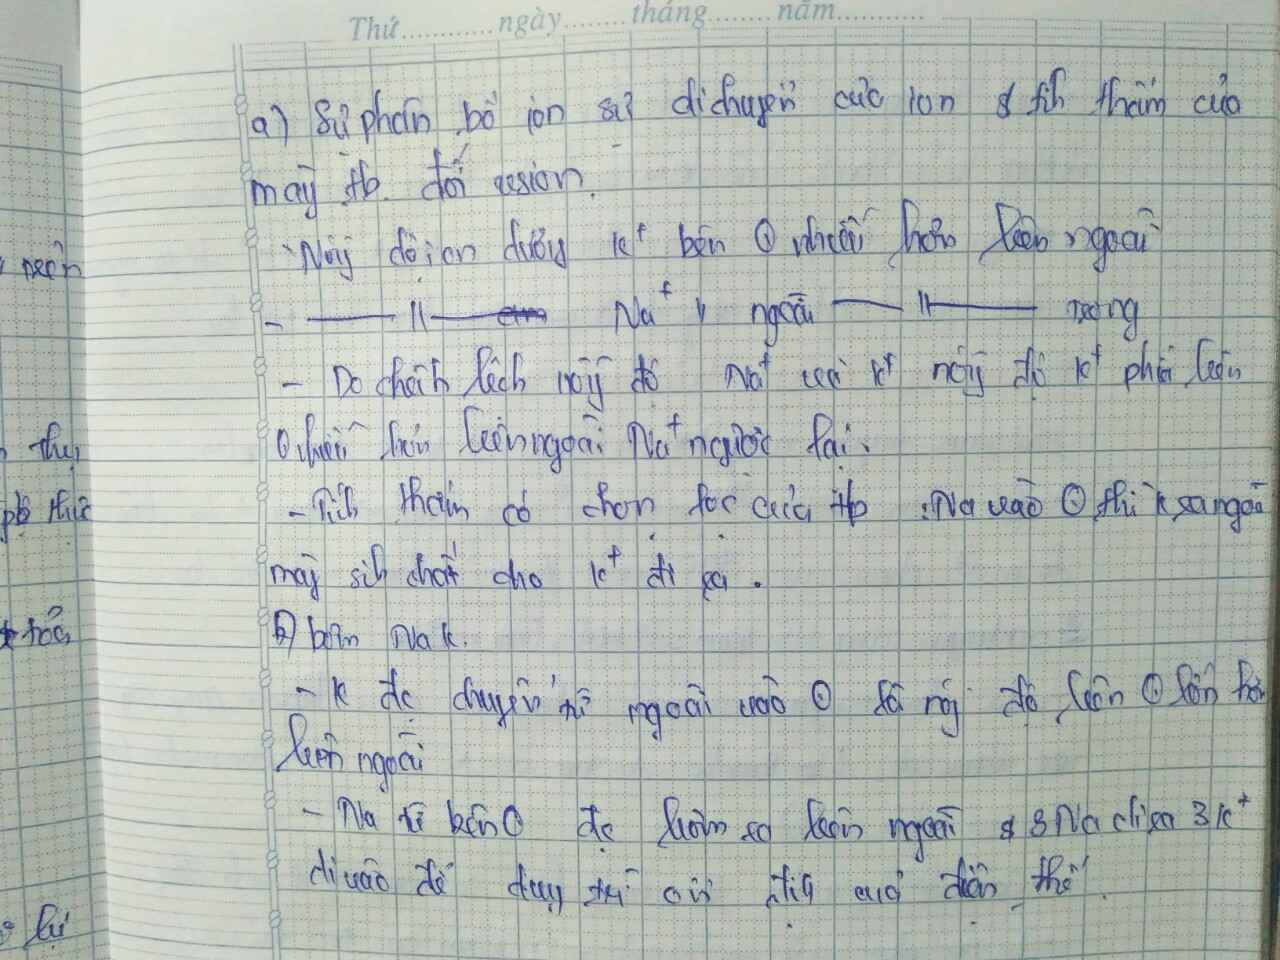 Thứ............ngày........tháng........năm...........
a) Sự phân bố ion sự di chuyển của ion & tíh thấm của
màg tb. đối với ion.
Nồg độ ion dươg K⁺ bên ⊙ nhiều hơn bên ngoài
- —— 〃 —— Na⁺ ở ngoài —— 〃 —— trong
- Do chêh lệch nồg độ Na⁺ và K⁺ nồg độ K⁺ phía bên
⊙ nhiều hơn bên ngoài Na⁺ ngược lại.
- Tíh thấm có chọn lọc của tb. Na vào ⊙ thì K ra ngoài
màg sih chất cho K⁺ đi ra.
b) bơm Na K.
- K đc chuyển từ ngoài vào ⊙ nồg độ bên ⊙ lớn hơn
bên ngoài
- Na từ bên ⊙ đc bơm ra bên ngoài & 3 Na đi ra 3 K⁺
đi vào để duy trì ổn địh điện thế.
thụ
tố
lự